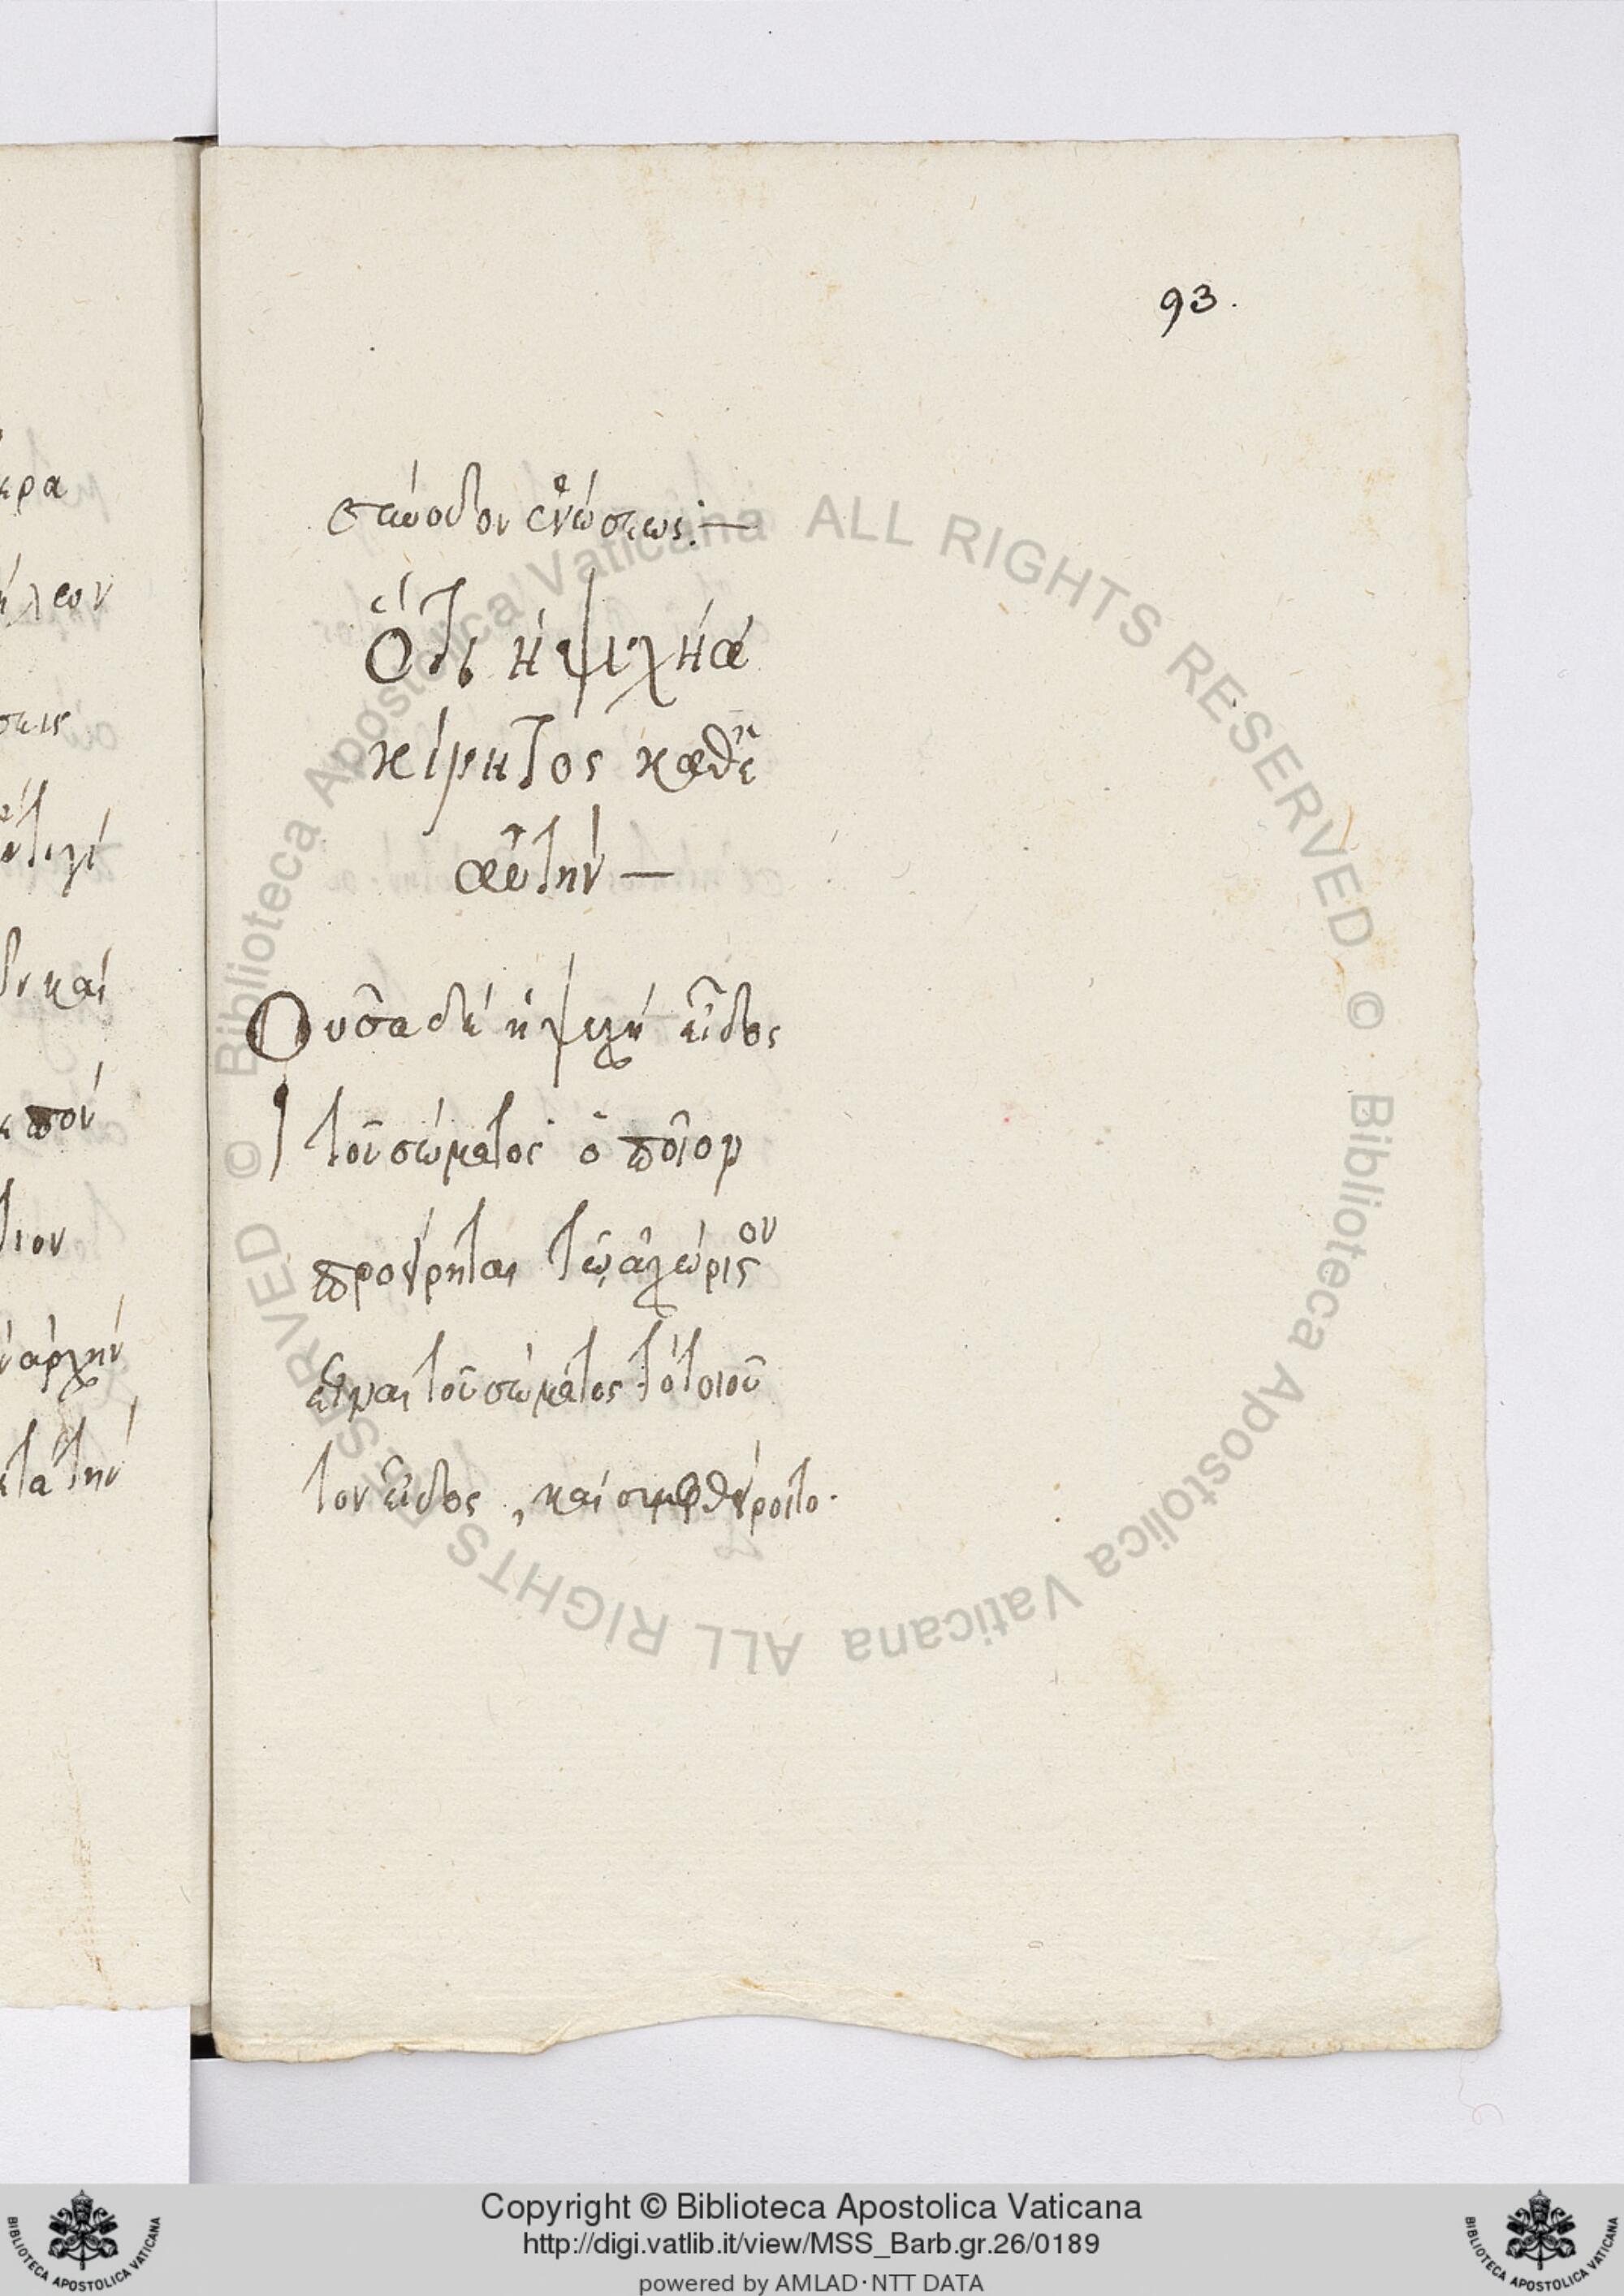 93.
σύνοδον ἑνώσεως:—
Ὅτι ἡ ψυχὴ ἀ
κίνητος καθ' ἑ
αυτήν —
Οὖσα δὲ ἡ ψυχὴ εἶδος
τοῦ σώματος ὁποῖον
προείρηται τῷ ἀχώριστον
εἶναι τοῦ σώματος τὸ τοιοῦ
τον εἶδος, καὶ συμφθείροιτο.
κρα
λεον
σεις
δν και
που
τιον
ν αρχήν
τα την
© Biblioteca Apostolica Vaticana ALL RIGHTS RESERVED © Biblioteca Apostolica Vaticana ALL RIGHTS RESERVED
Copyright © Biblioteca Apostolica Vaticana
http://digi.vatlib.it/view/MSS_Barb.gr.26/0189
powered by AMLAD·NTT DATA
BIBLIOTECA APOSTOLICA VATICANA
BIBLIOTECA APOSTOLICA VATICANA